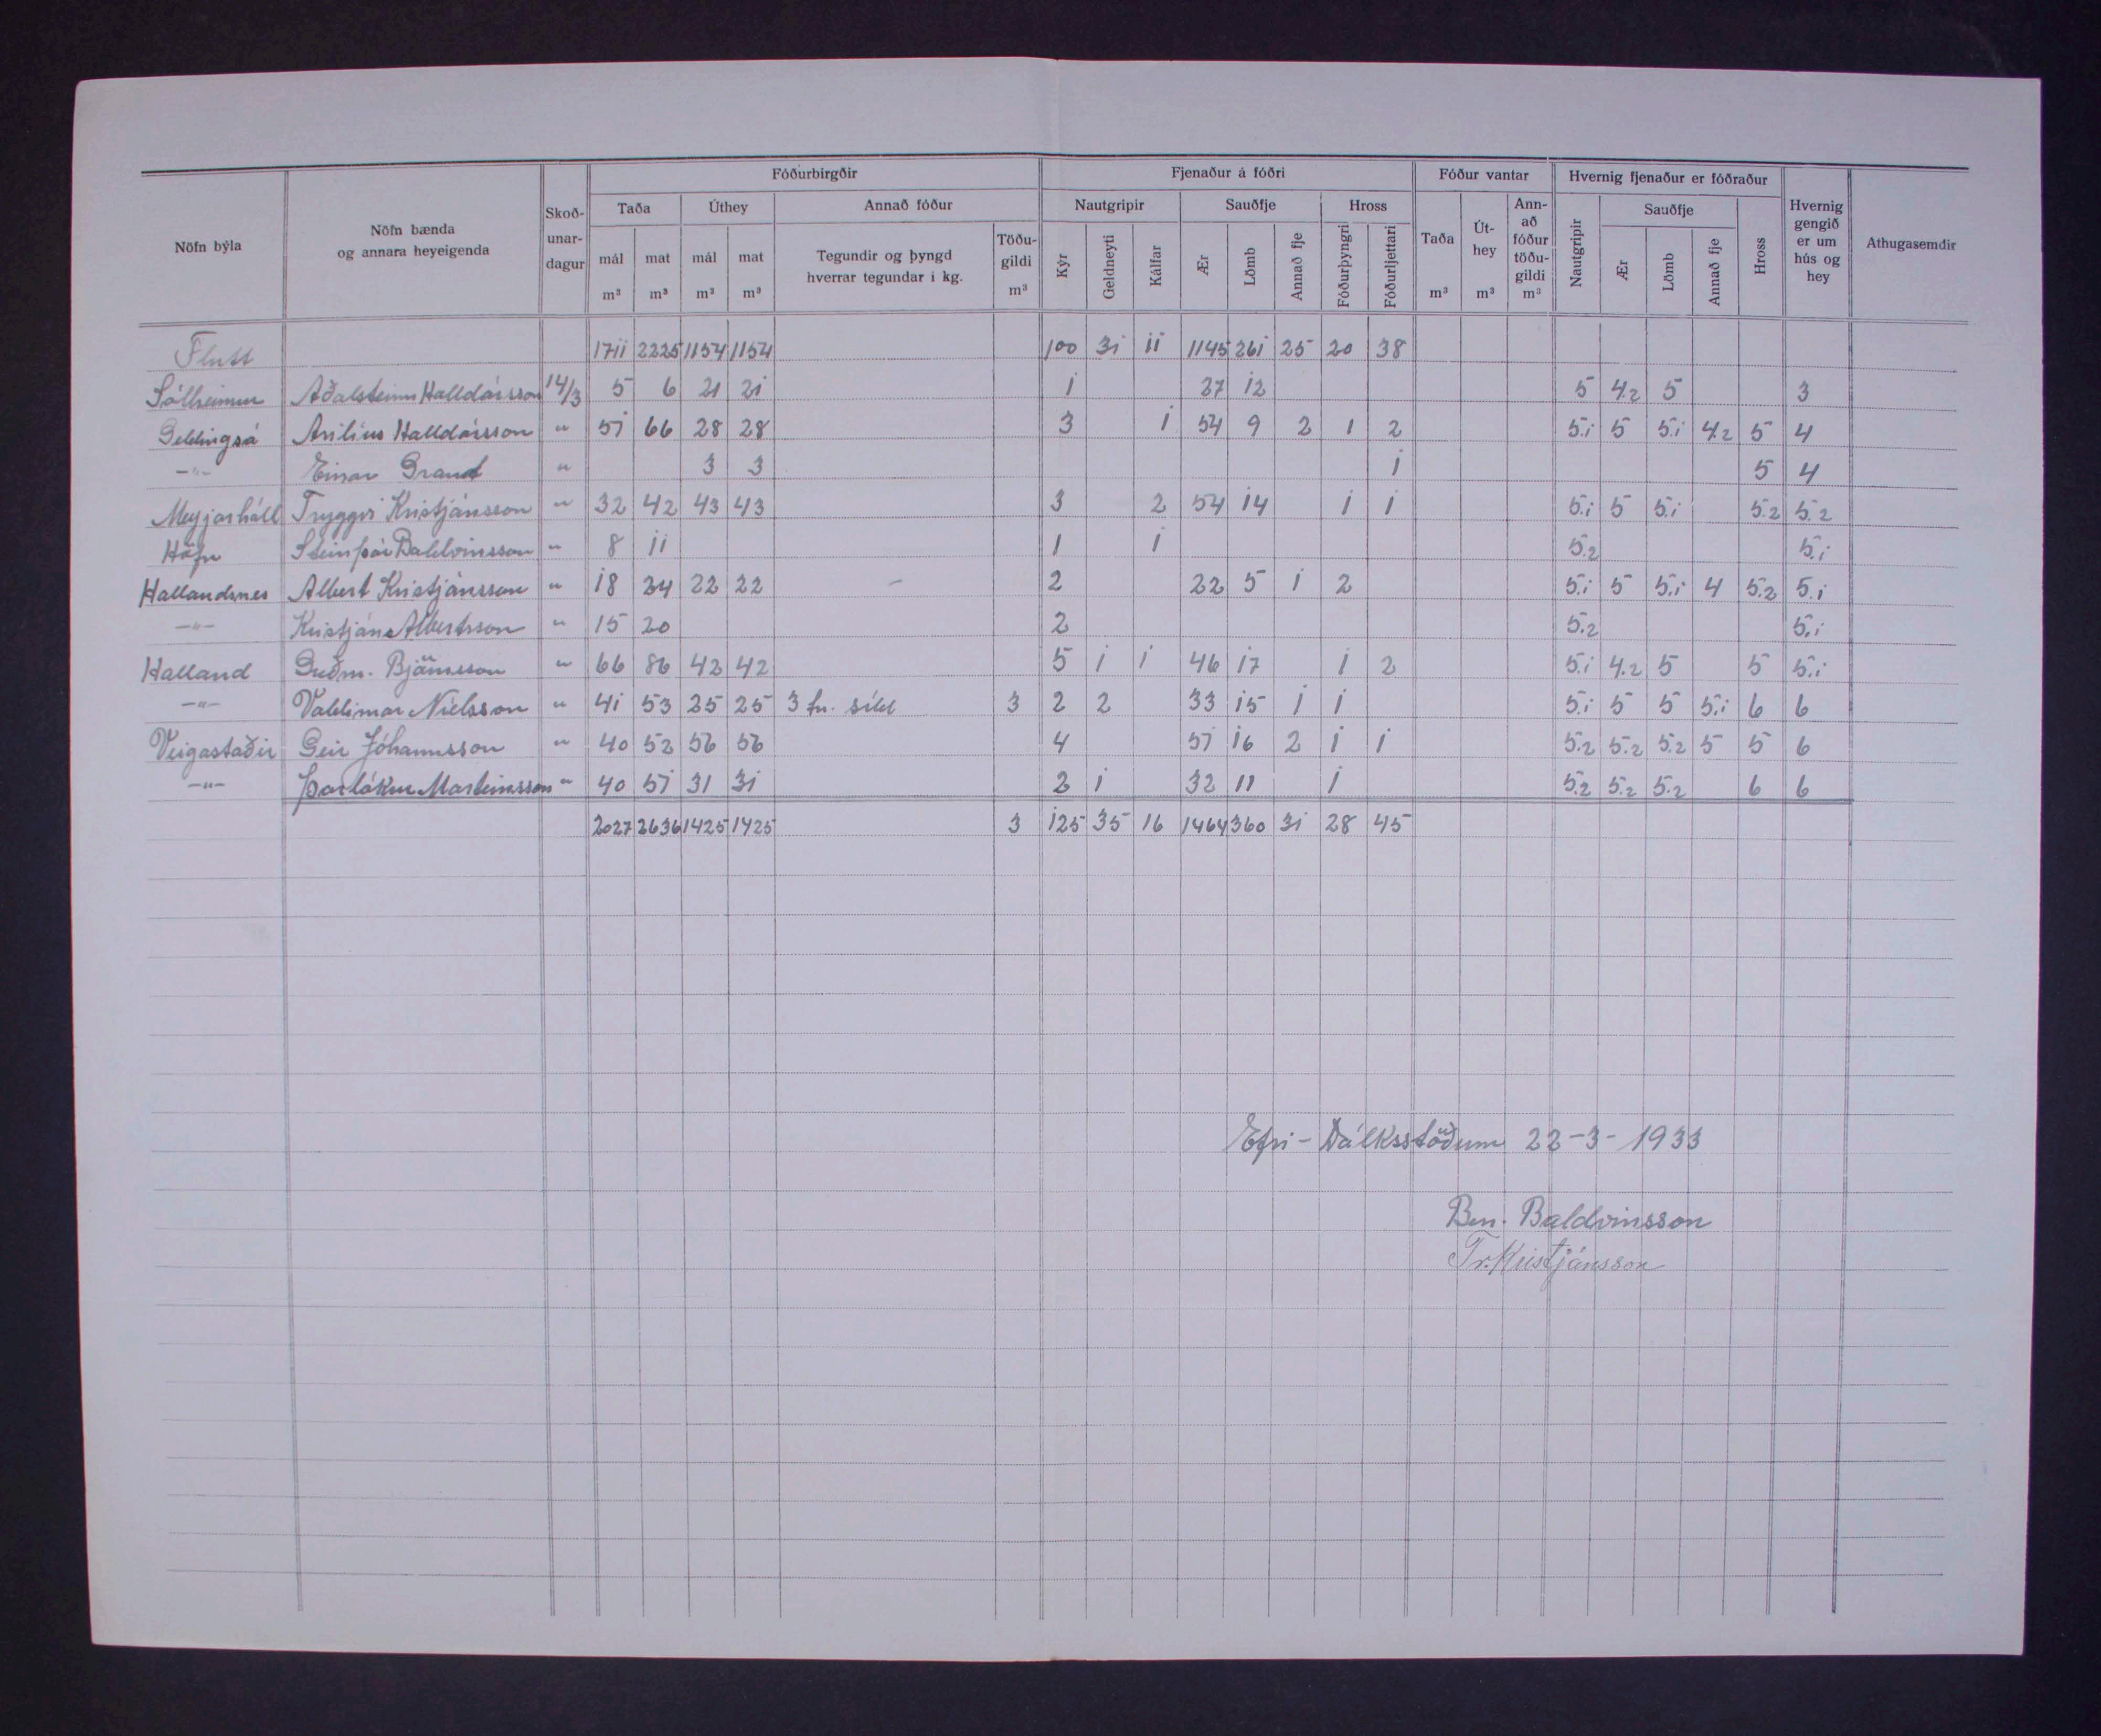 Fóðurbirgðir Fjenaður á fóðri Fóður vantar Hvernig fjenaður er fóðraður
Nöfn býla Nöfn bænda og annara heyeigenda Skoð-unar-dagur Taða Úthey Annað fóður Nautgripir Sauðfje Hross Taða m³ Út-hey m³ Ann-að fóður töðu-gildi m³ Nautgripir Sauðfje Hross Hvernig gengið er um hús og hey Athugasemdir
mál m³ mat m³ mál m³ mat m³ Tegundir og þyngd hverrar tegundar í kg. Töðu-gildi m³ Kýr Geldneyti Kálfar Ær Lömb Annað fje Fóðurþyngri Fóðurljettari Ær Lömb Annað fje
Flutt 1711 2225 1154 1154 100 31 11 1145 261 25 20 38
Sólheimum Aðalsteinn Halldórsson 14/3 5 6 21 21 1 27 12 5 4.2 5 3
Geldingsá Arilíus Halldórsson " 51 66 28 28 3 1 54 9 2 1 2 5.1 5 5.1 4.2 5 4
-"- Einar Grant " 3 3 1 5 4
Meyjarhóll Tryggvi Kristjánsson " 32 42 43 43 3 2 54 14 1 1 5.1 5 5.1 5.2 5.2
Höfn Steinþór Baldvinsson " 8 11 1 1 5.2 5.1
Hallandsnes Albert Kristjánsson " 18 24 22 22 - 2 22 5 1 2 5.1 5 5.1 4 5.2 5.1
-"- Kristján Albertsson " 15 20 2 5.2 5.1
Halland Guðm. Björnsson " 66 86 42 42 5 1 1 46 17 1 2 5.1 4.2 5 5 5.1
-"- Valdimar Níelsson " 41 53 25 25 3 tn. síld 3 2 2 33 15 1 1 5.1 5 5 5.1 6 6
Veigastaðir Geir Jóhannsson " 40 52 56 56 4 51 16 2 1 1 5.2 5.2 5.2 5 5 6
-"- Þorlákur Marteinsson " 40 51 31 31 2 1 32 11 1 5.2 5.2 5.2 6 6
2027 2636 1425 1425 3 125 35 16 1464 360 31 28 45
Efri-Dálksstöðum 22-3-1933
Ben. Baldvinsson
Tr. Kristjánsson